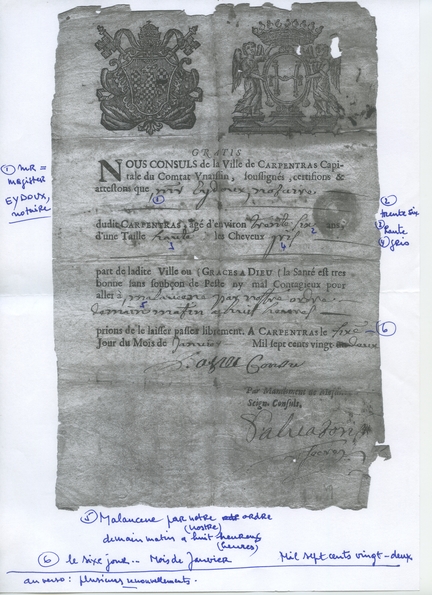 GRATIS
NOUS CONSULS de la Ville de CARPENTRAS Capi-
tale du Comtat Venaissin, soussignés, certifions &
attestons que mr Eydoux notaire
①
dudit CARPENTRAS, âgé d'environ trente six ans,
d'une Taille haute les Cheveux gris
2
3
4
part de ladite Ville ou (GRACES A DIEU) la Santé est tres
bonne sans soubçon de Peste ny mal Contagieux pour
aller à malaucene par nostre ordre
5
demain matin a huit heures
prions de le laisser passer librement. A CARPENTRAS le sixe
Jour du Mois de Janvier Mil sept cents vingt deux
Par Mandement de Mesdits
Seign. Consuls.
① mr =
magister
EYDOUX,
notaire
②
trente six
③ haute
④ gris
⑥
⑤ Malaucene par notre ordre
(nostre)
demain matin a huit heureus
(heures)
⑥ le sixe jour... Mois de Janvier Mil sept cents vingt-deux
au verso : plusieurs renouvellements.